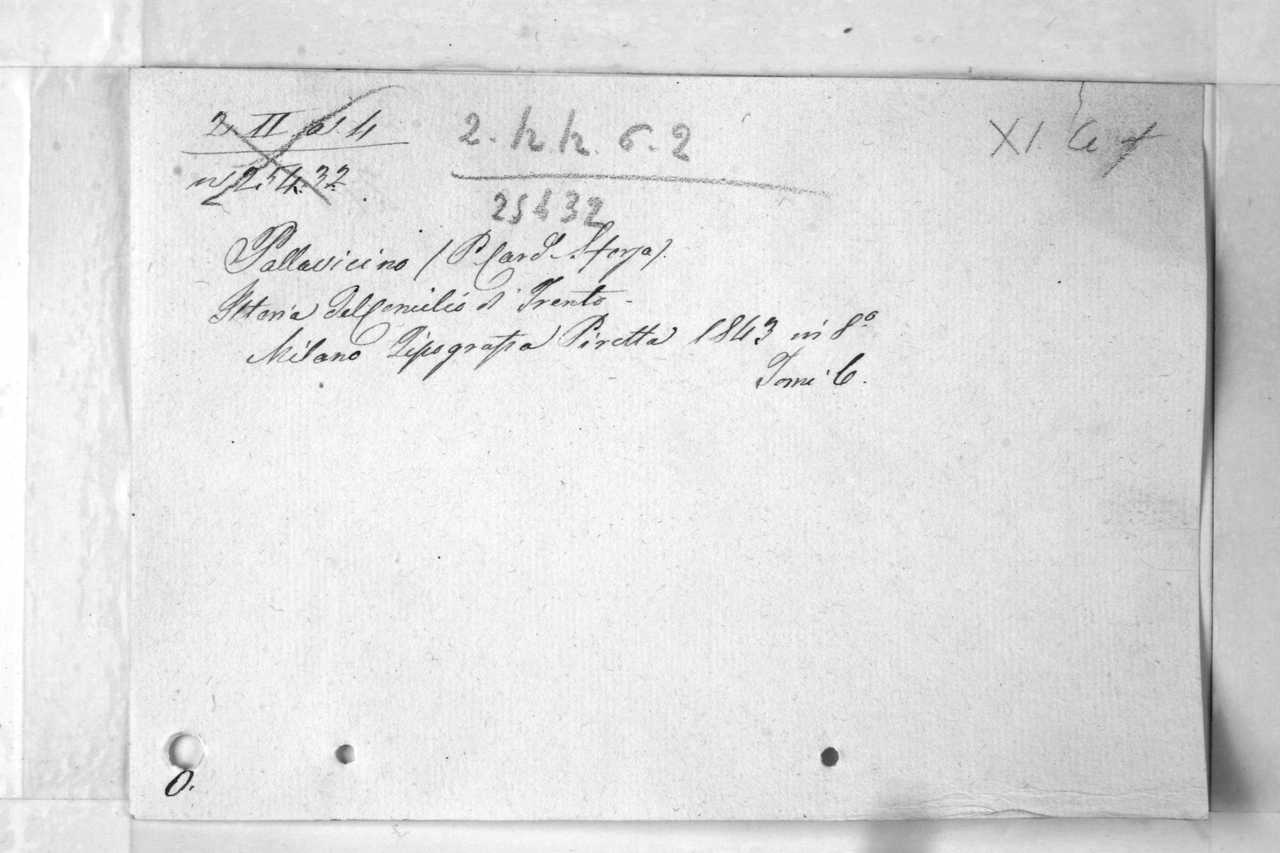 2. h.h. 6.2
25432
XI.
Pallavicino (P. Card. Sforza).
Storia del Concilio di Trento -
Milano Tipografia Pirotta 1843 in 8º
Tomi 6.
O.